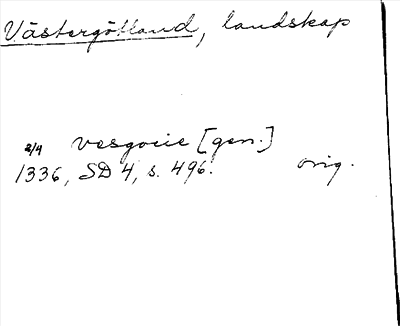 Västergötland, landskap
2/4 vesgocie [gen.]
1336, SD 4, s. 496. orig.